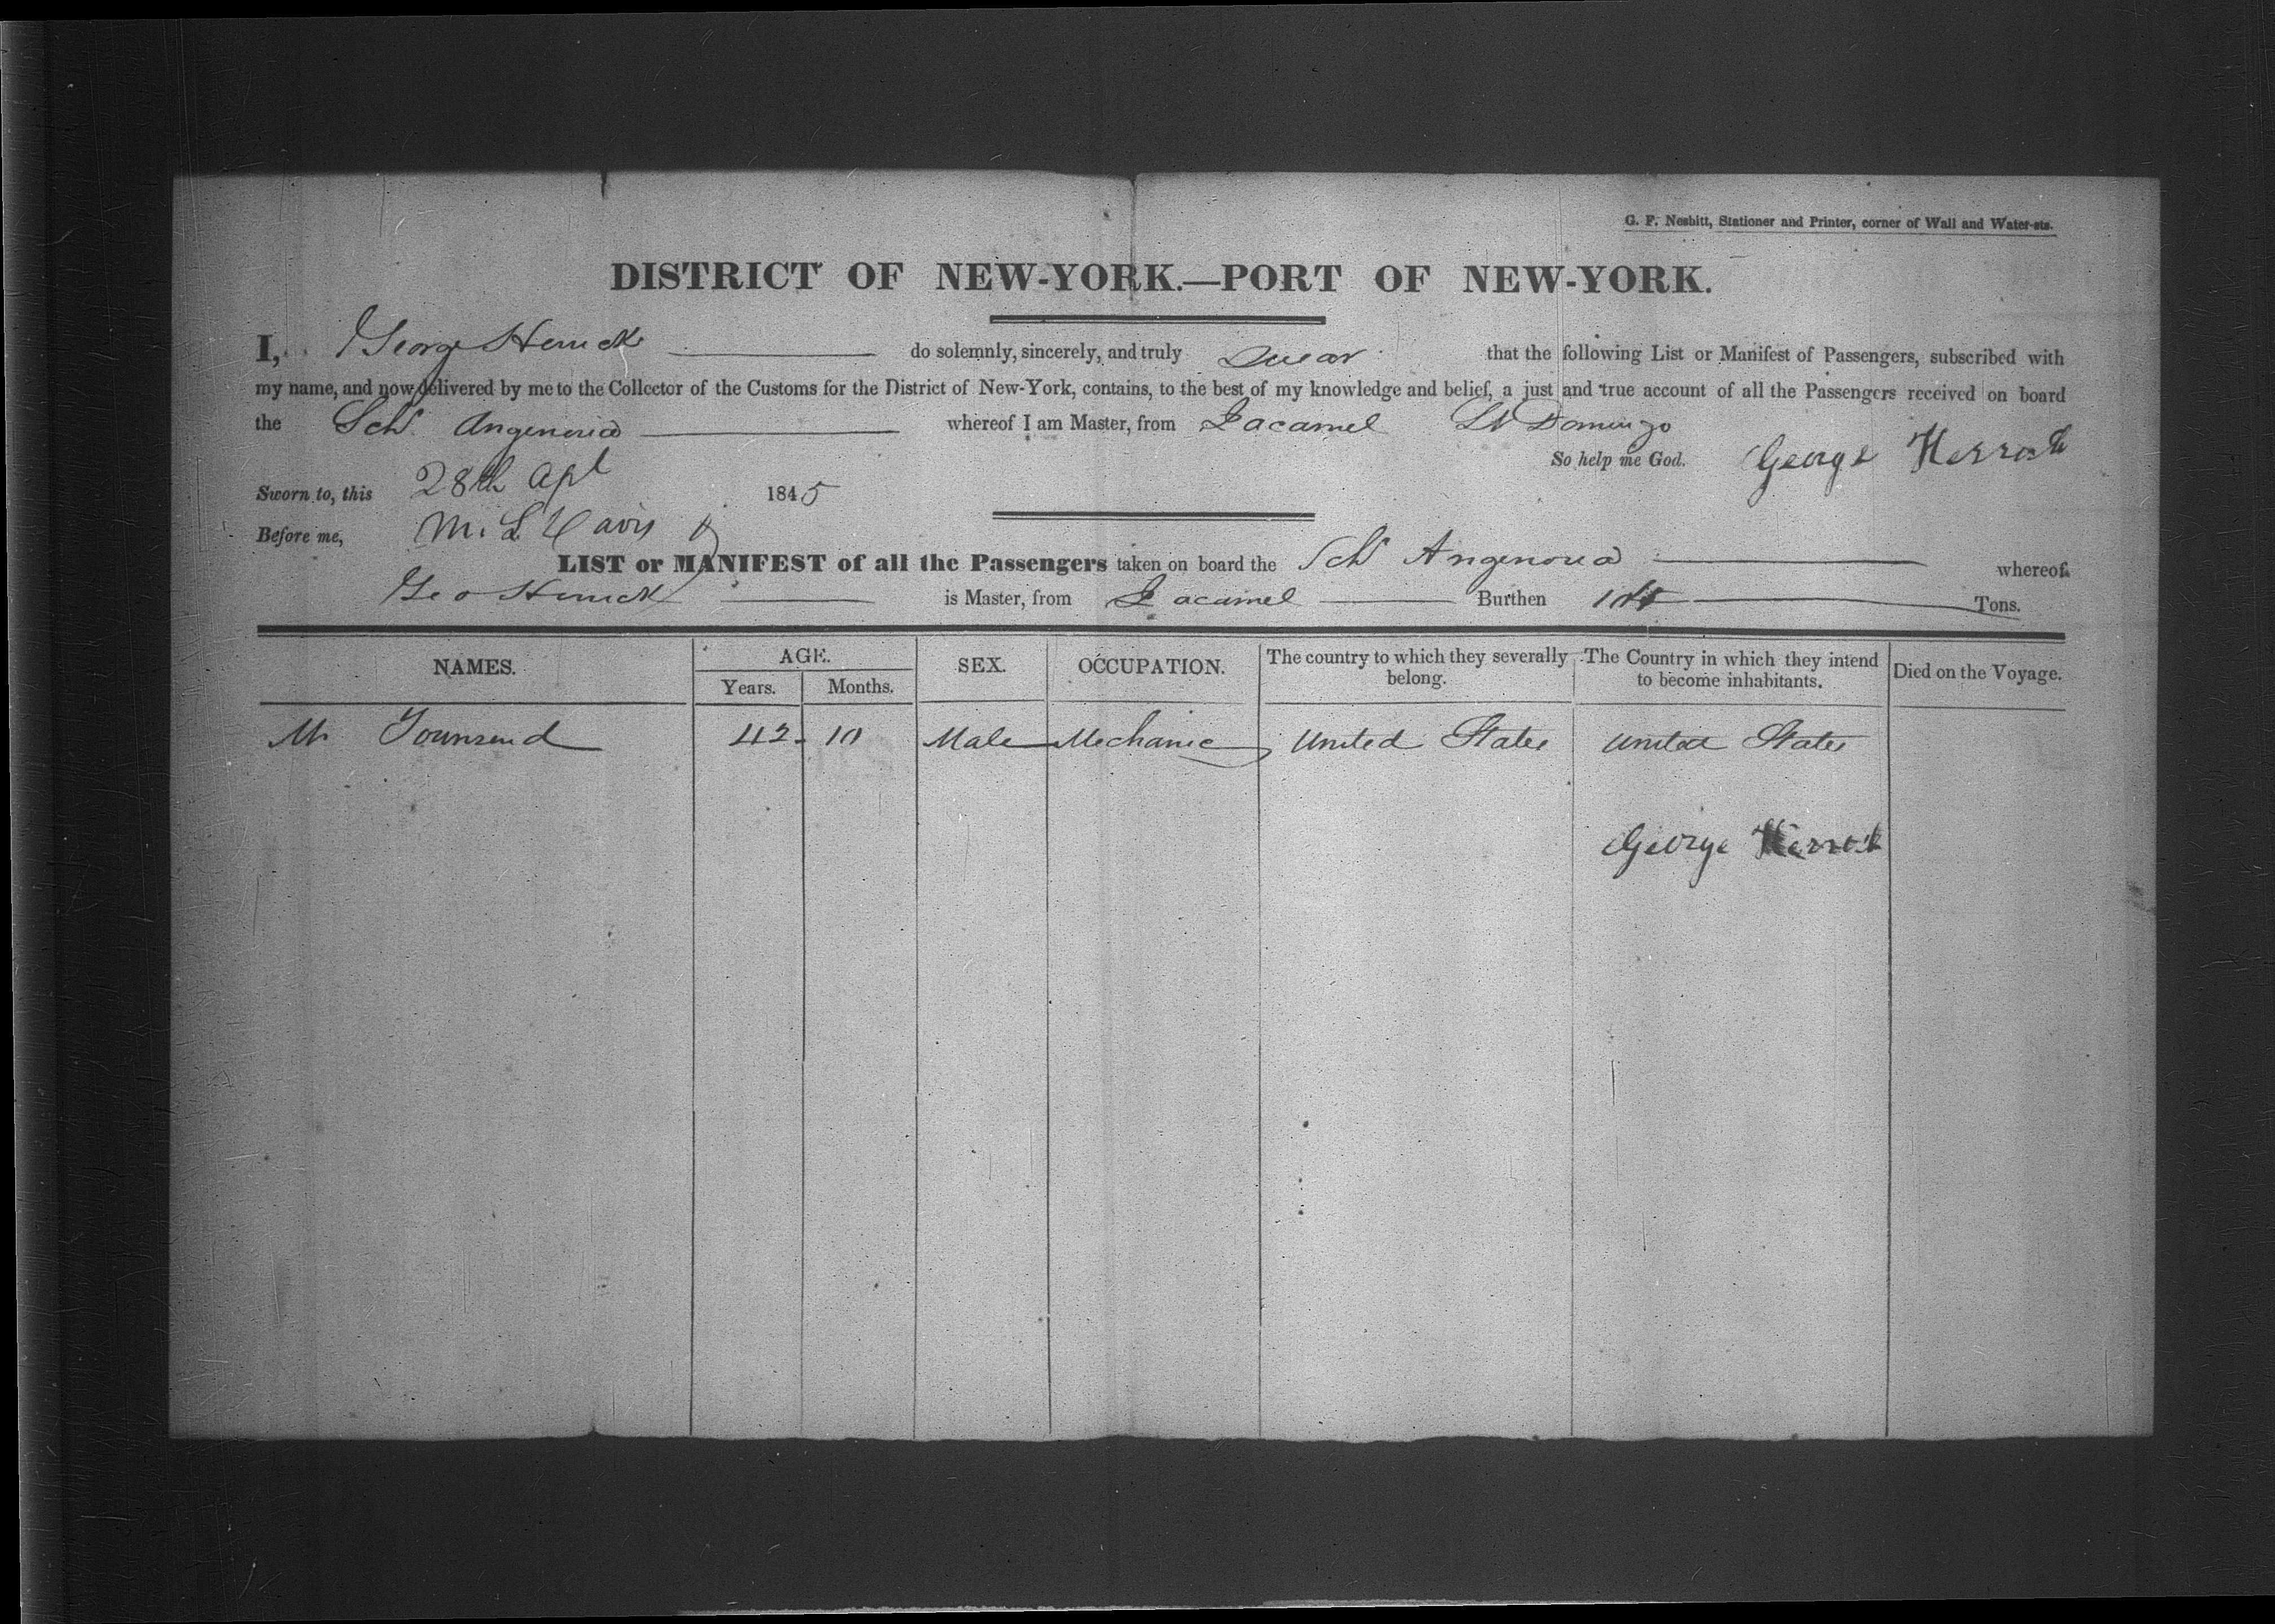 G. F. Nesbitt, Stationer and Printer, corner of Wall and Water-sts.
DISTRICT OF NEW-YORK.—PORT OF NEW-YORK.
I, George Herrick do solemnly, sincerely, and truly swear that the following List or Manifest of Passengers, subscribed with
my name, and now delivered by me to the Collector of the Customs for the District of New-York, contains, to the best of my knowledge and belief, a just and true account of all the Passengers received on board
the Schr Angenoria whereof I am Master, from Jacamel St Domingo
So help me God. George Herrick
Sworn to, this 28th Apl 1845
Before me, M. L. Davis
LIST or MANIFEST of all the Passengers taken on board the Schr Angenoria whereof
Geo Herrick is Master, from Jacamel Burthen Tons.
NAMES. AGE. SEX. OCCUPATION. The country to which they severally belong. The Country in which they intend to become inhabitants. Died on the Voyage.
Years. Months.
Mr Townsend 42 10 Male Mechanic United States United States
George Herrick